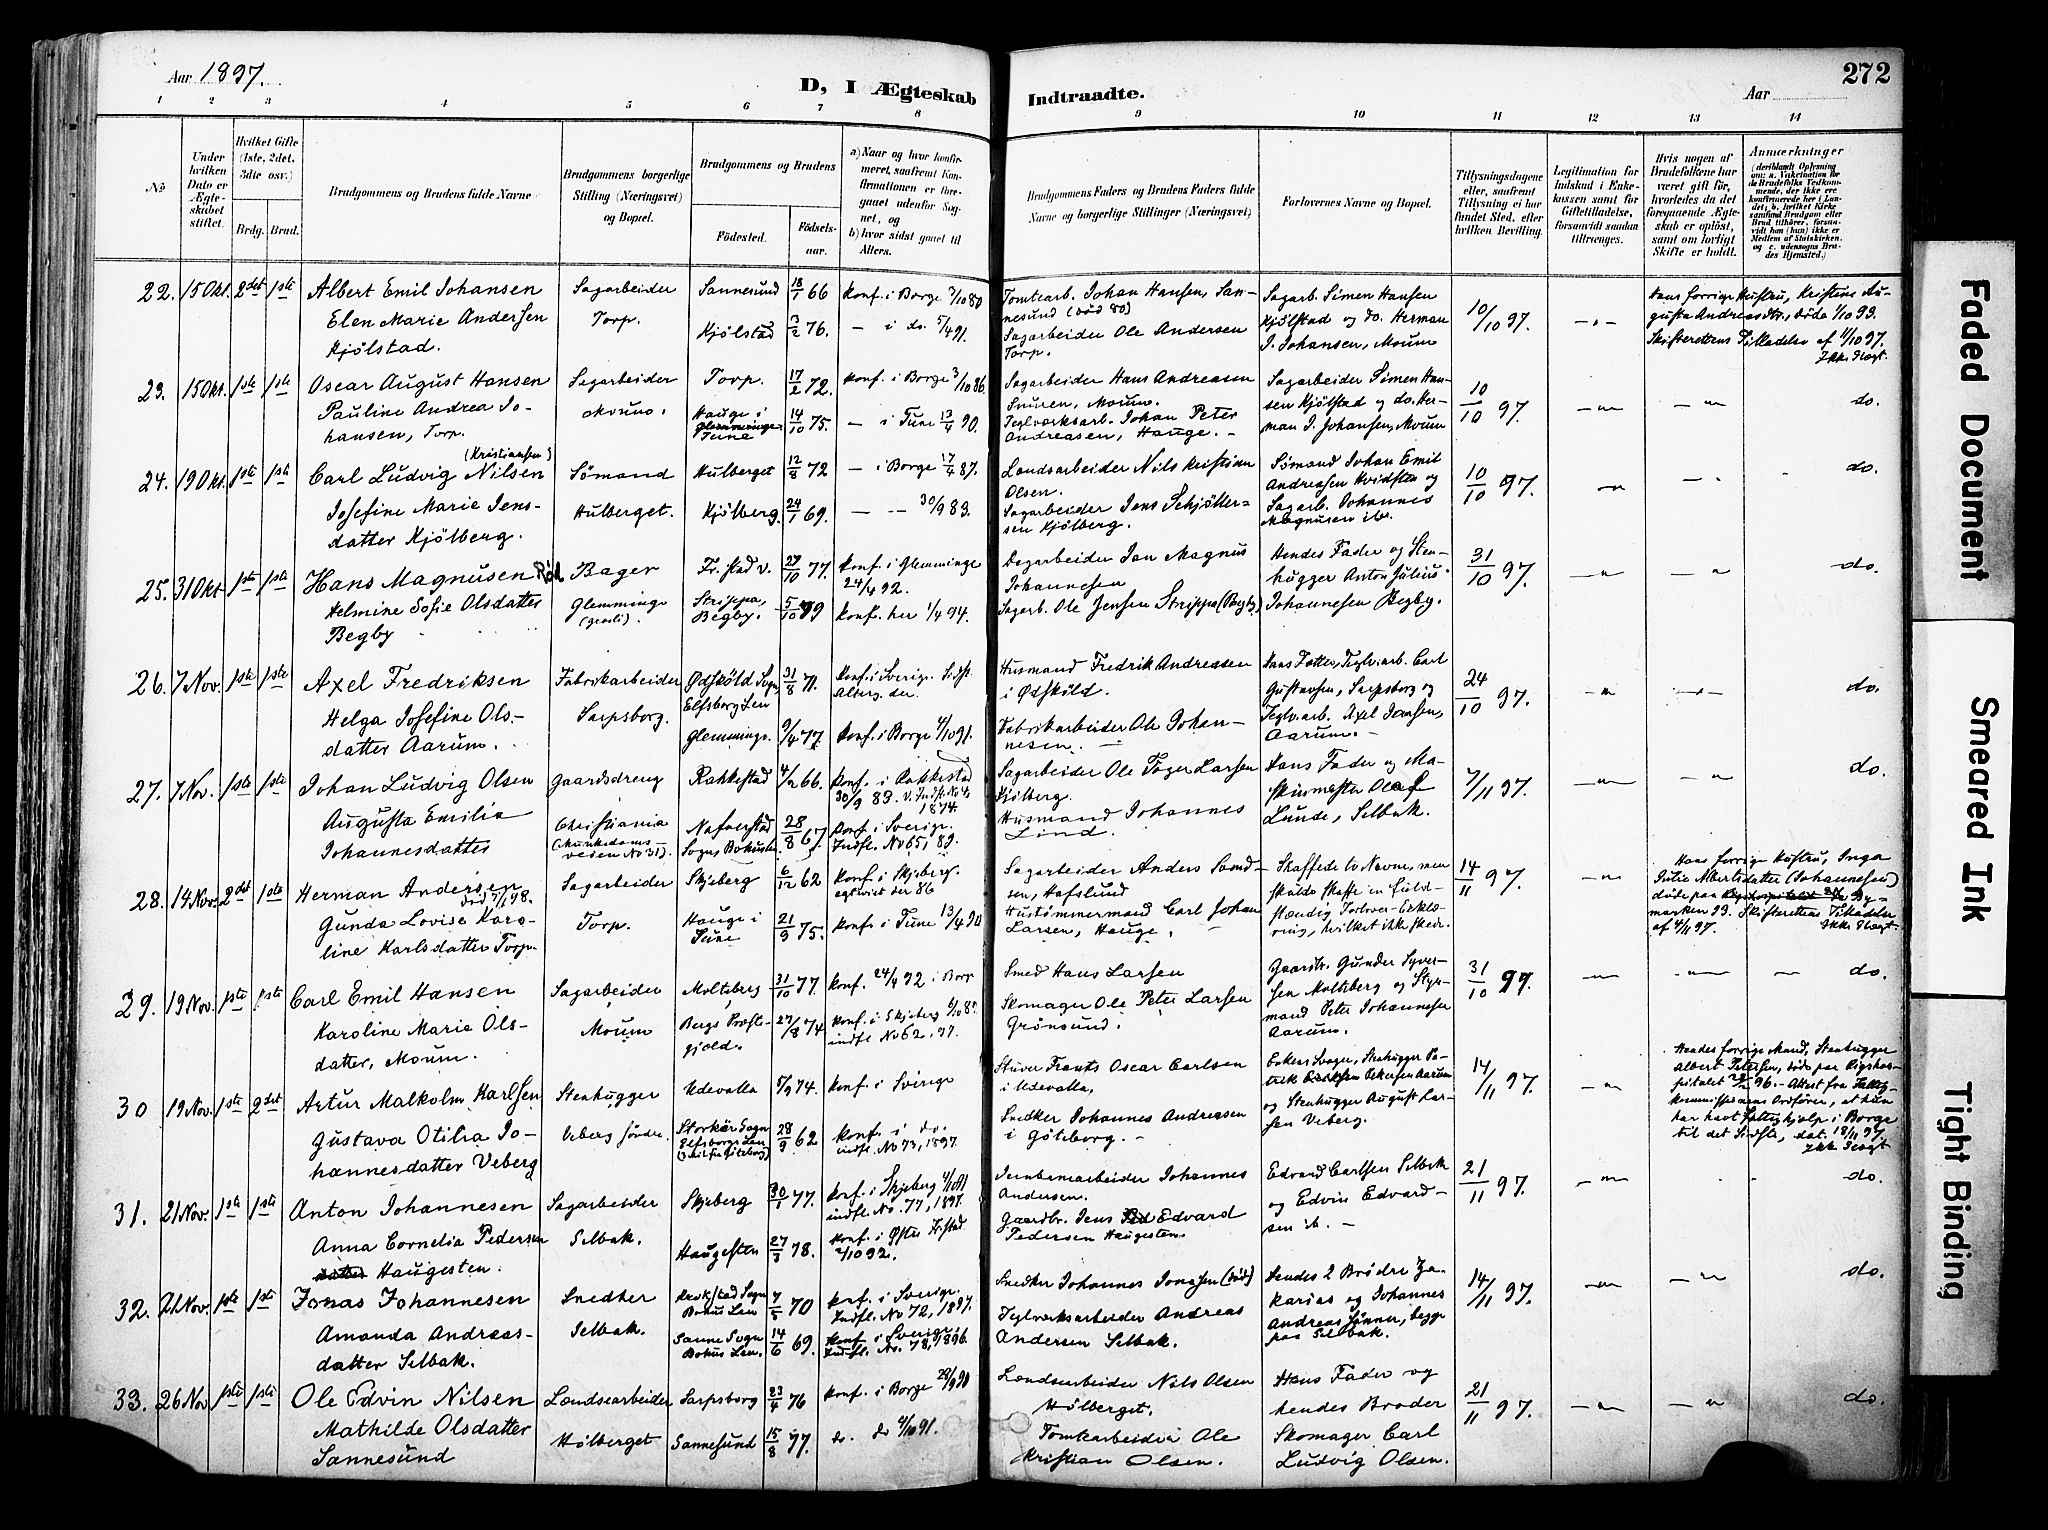 Aar 1897.
D, I Ægteskab Indtraadte.
Aar
272
1 2 3 4 5 6 7 8 9 10 11 12 13 14
No
Under hvilken Dato er Ægteskabet stiftet.
Hvilket Gifte (1ste, 2det, 3die osv.)
Brdg. Brud.
Brudgommens og Brudens fulde Navne
Brudgommens borgerlige Stilling (Næringsvei) og Bopæl.
Brudgommens og Brudens
Fødested.
Fødselsaar.
a) Naar og hvor konfirmeret, saafremt Konfirmationen er foregaaet udenfor Sognet, og
b) hvor sidst gaaet til Alters.
Brudgommens Faders og Brudens Faders fulde Navne og borgerlige Stillinger (Næringsvei)
Forlovernes Navne og Bopæl.
Tillysningsdagene eller, saafremt Tillysning ei har fundet Sted, efter hvilken Bevilling.
Legitimation for Indskud i Enkekassen samt for Giftetilladelse, forsaavidt saadan tiltrænges.
Hvis nogen af Brudefolkene har været gift før, hvorledes da det foregaaende Ægteskab er opløst, samt om lovligt Skifte er holdt.
Anmærkninger
22. 15 Okt. 2det 1ste
Albert Emil Johansen
Elen Marie Andersen
Kjölstad.
Sagarbeider
Torp.
Sannesund 18/1 66
Kjölstad 3/2 76.
Konf. i Borge 3/10 80
— i do. 5/4 91.
Tomtearb. Johan Hansen, Sannesund (død 80)
Sagarbeider Ole Andersen
Torp.
Sagarb. Simen Hansen
Kjölstad og do. Herman
J. Johansen, Moum
10/10 97.
Hans forrige Hustru, Kristine Augusta Andreasdtr., døde 1/10 93.
Skifterettens Tilladelse af 11/10 97.
Ikke Slægt.
23. 15 Okt. 1ste 1ste
Oscar August Hansen
Pauline Andrea Johansen, Torp.
Sagarbeider
Moum.
Torp. 17/2 72.
Hauge i
Tune 14/10 75.
Konf. i Borge 3/10 86.
— i Tune 13/4 90.
Sagarbeider Hans Andreasen
Snuren, Moum.
Teglværksarb. Johan Peter
Andreasen, Hauge. -
Sagarbeider Simen Hansen Kjölstad og do. Herman J. Johansen, Moum
10/10 97.
do.
24. 19 Okt. 1ste 1ste
(Kristiansen)
Carl Ludvig Nilsen
Josefine Marie Jensdatter Kjölberg.
Sømand
Hulberget.
Hulberget 12/8 72
Kjölberg. 24/1 69.
— i Borge 17/4 87.
— — 30/9 83.
Landsarbeider Nils Kristian
Olsen.
Sagarbeider Jens Schjøttersen Kjölberg.
Sømand Johan Emil
Andreasen Kvidsten og
Sagarb. Johannes
Magnusen ib.
10/10 97.
do.
25. 31 Okt 1ste 1ste
Hans Magnusen Röd
Helmine Sofie Olsdatter
Begby
Bager
Glemminge
Fr.stad v. 27/10 77.
Strippa,
Begby. 5/10 79
Konf. i Glemminge
24/4 92.
Konf. her 1/4 94.
Dagarbeider Jan Magnus
Johannesen
Sagarb. Ole Jensen Strippa (Begby)
Hendes Fader og Stenhugger Anton Julius
Johannesen Begby.
31/10 97.
do.
26. 7 Nov. 1ste 1ste
Axel Fredriksen
Helga Josefine Olsdatter Aarum.
Fabrikarbeider
Sarpsborg.
Ødsköld Sogn
Elfsborg Len 31/8 71.
Glemminge. 9/4 77.
Konf. i Sverige. Sidst
Alterg. der.
Konf. i Borge 4/10 91.
Husmand Fredrik Andreasen
i Ødsköld.
Fabrikarbeider Ole Johannesen.
Hans Fætter, Teglv.arb. Carl
Gustavsen, Sarpsborg og
Teglv.arb. Axel Jansen,
Aarum.
24/10 97.
do.
27. 7 Nov. 1ste 1ste
Johan Ludvig Olsen
Augusta Emilia
Johannesdatter
Gaardsdreng
Christiania
(Munkedamsveien No 31).
Rakkestad 4/2 66.
Naverstad
Sogns Bohuslen 28/8 67.
Konf. i Rakkestad
30/9 83. v. Indfl. No 4,
1874.
Konf. i Sverige.
Indfl. No 65, 89.
Sagarbeider Ole Toger Larsen
Kjölberg.
Husmand Johannes
Lind.
Hans Fader og Maskinmester Olaf
Lunde, Selbak.
7/11 97.
do.
28. 14 Nov. 2det 1ste
Herman Andersen
død 7/1 98.
Gunda Lovise Karoline Karlsdatter Torp.
Sagarbeider
Torp.
Skjeberg 6/12 62
Hauge i
Tune 21/9 75.
Konf. i Skjeberg.
egtviet der 86
Konf. i Tune 13/4 90
Sagarbeider Anders Samdsen, Hafslund
Hustømmermand Carl Johan
Larsen, Hauge.
Skaffede to Navne, men
skulde skaffe en fuldstændig Forlover-Erklæring, hvilket ikke skede.
14/11 97.
Hans forrige Hustru, Inga
Julie Albertsdatter (Johannesen)
døde paa Bymarken 93. Skifterettens Tilladelse
af 4/11 97.
Ikke Slægt.
29. 19 Nov. 1ste 1ste
Carl Emil Hansen
Karoline Marie Olsdatter, Moum.
Sagarbeider
Moum
Molteberg 31/10 77.
Bergs Præstgjeld. 27/8 74
Konf. 24/4 92 i Borge
Konf. i Skjeberg 6/10 8
indfl No 62. 97.
Smed Hans Larsen
Skomager Ole Peter Larsen
Grönsund.
Gaardbr. Gunder Syversen Molteberg og Styrmand Peter Johannesen
Aarum.
31/10 97.
do.
30 19 Nov. 1ste 2det
Artur Malkolm Karlsen
Gustava Otilia Johannesdatter Veberg
Stenhugger
Veberg søndre.
Udevalla 5/9 74.
Storkär Sogn
Elfsborgs Len 28/9 62
Konf. i Sverige
Konf. i do.
indfl No 73, 1897.
Stuer Frants Oscar Carlsen
i Udevalla,
Snedker Johannes Andreasen
i Göteborg. -
Enkens Svoger, Stenhugger Patrik Pettersen Aarum
og Stenhugger August Larsen Veberg.
14/11 97.
Hendes forrige Mand, Stenhugger
Albert Petersen, døde paa Rigshospitalet 96. - Attest fra Fattigkommissionens Ordfører, at hun
har havt Fattighjælp i Borge
til det Sidste, dat. 18/11 97.
Ikke Slægt
31. 21 Nov. 1ste 1ste
Anton Johannesen
Anna Cornelia Pedersen
Haugesten.
Sagarbeider
Selbak.
Skjeberg 77.
Haugesten 27/3 78.
Konf. i Skjeberg
indfl. No. 77, 1897.
Konf. i Øster Fr.stad.
2/10 92.
Jernbanearbeider Johannes
Andersen.
Gaardbr. Jens Edvard
Pedersen Haugesten.
Edvard Carlsen Selbak
og Edvin Edvardsen ib. -
21/11 97.
do.
32. 21 Nov. 1ste 1ste
Jonas Johannesen
Amanda Andreasdatter Selbak.
Snedker
Selbak.
Krokstad Sogn
Bohus Len 7/5 70
Sanne Sogn
Bohus Len. 14/6 69.
Konf. i Sverige.
Indfl. No 72, 1897.
Konf. i Sverige,
Indfl. No. 78, 1896.
Snedker Johannes Jonassen (død)
Teglværksarbeider Andreas
Andersen Selbak.
Hendes 2 Brødre Zakarias og Johannes
Andreas Sønner, begge
paa Selbak.
14/11 97.
do.
33. 26 Nov 1ste 1ste
Ole Edvin Nilsen
Mathilde Olsdatter
Sannesund
Landsarbeider
Hølberget
Sarpsborg 23/4 76
Sannesund 15/8 77.
Konf. i Borge
do. do 4/10 91.
Landsarbeider Nils Olsen
Hølberget.
Tomtearbeider Ole
Kristian Olsen.
Hans Fader og
hendes Broder
Skomager Carl
Ludvig Olsen.
21/11 97.
do.
Faded Document
Smeared Ink
Tight Binding